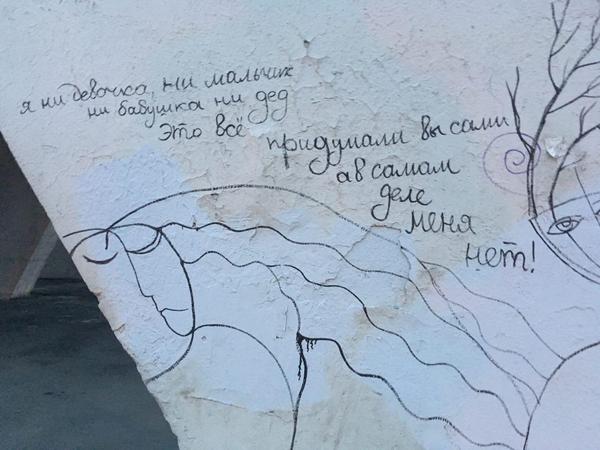 я ни девочка, ни мальчик
ни бабушка ни дед
это всё
придумали вы сами
а в самам
деле
меня
нет!